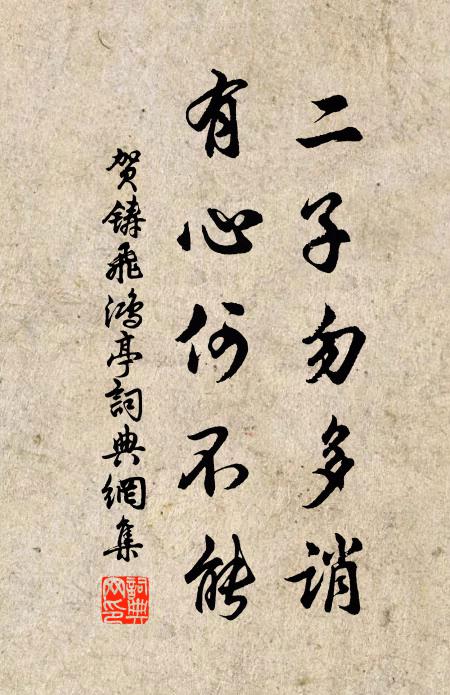 二子勿多誚
有心何不能
贺鑄飛鴻亭詞典網集
詞典